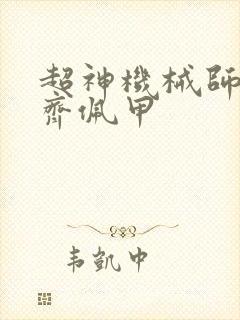 超神機械師
齊佩甲
韦凱中